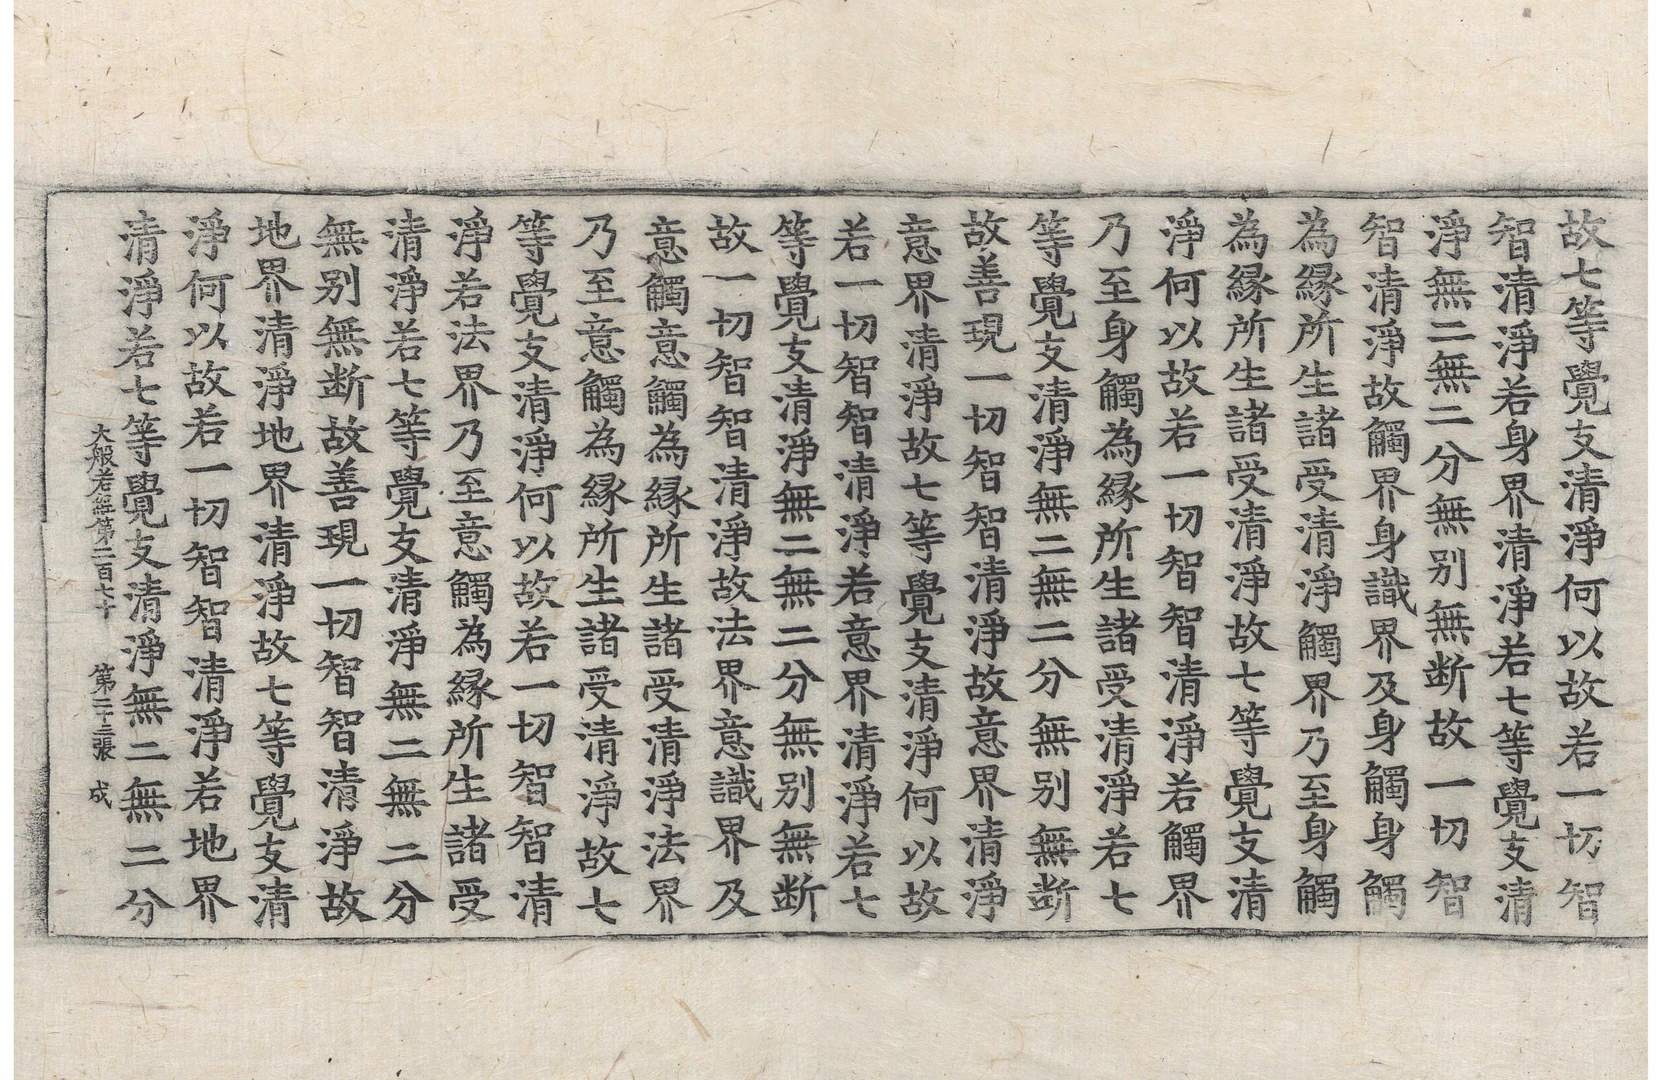 故七等覺支清淨何以故若一切智
智清淨若身界清淨若七等覺支清
淨無二無二分無别無断故一切智
智清淨故觸界身識界及身觸身觸
為縁所生諸受清淨觸界乃至身觸
為縁所生諸受清淨故七等覺支清
淨何以故若一切智智清淨若觸界
乃至身觸為縁所生諸受清淨若七
等覺支清淨無二無二分無别無断
故善現一切智智清淨故意界清淨
意界清淨故七等覺支清淨何以故
若一切智智清淨若意界清淨若七
等覺支清淨無二無二分無别無断
故一切智智清淨故法界意識界及
意觸意觸為縁所生諸受清淨法界
乃至意觸為縁所生諸受清淨故七
等覺支清淨何以故若一切智智清
淨若法界乃至意觸為縁所生諸受
清淨若七等覺支清淨無二無二分
無别無断故善現一切智智清淨故
地界清淨地界清淨故七等覺支清
淨何以故若一切智智清淨若地界
清淨若七等覺支清淨無二無二分
大般若經第二百七十 第二十三張 成